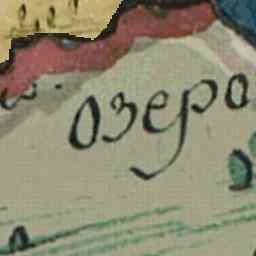 озеро